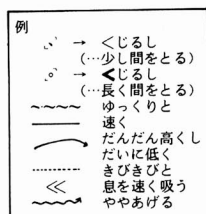 例
→ <じるし
(…少し間をとる)
→ <じるし
(…長く間をとる)
ゆっくりと
速く
だんだん高くし
だいに低く
きびきびと
≪ 息を速く吸う
ややあげる